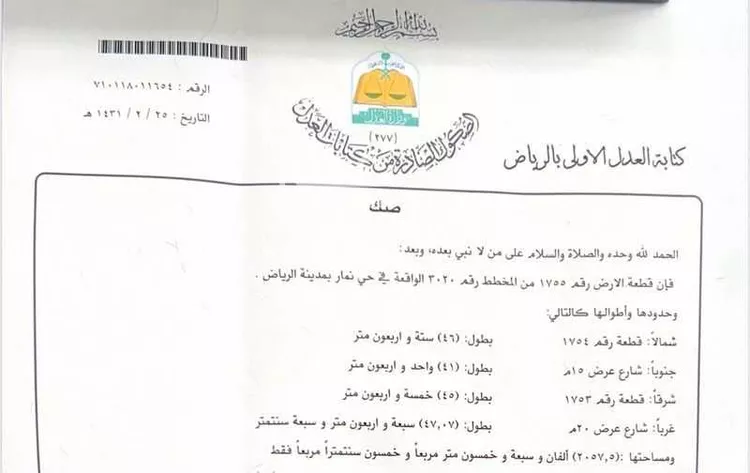 بسم الله الرحمن الرحيم
وزارة العدل
(٢٧٧)
الصكوك الصادرة من كتابات العدل
الرقم : ٧١٠١١٨٠١١٦٥٤
التاريخ : ٢٥ / ٢ / ١٤٣١ هـ
كتابة العدل الاولى بالرياض
صك
الحمد لله وحده والصلاة والسلام على من لا نبي بعده، وبعد:
فإن قطعة الارض رقم ١٧٥٥ من المخطط رقم ٣٠٢٠ الواقعة في حي نمار بمدينة الرياض .
وحدودها وأطوالها كالتالي:
شمالاً: قطعة رقم ١٧٥٤ بطول: (٤٦) ستة و اربعون متر
جنوباً: شارع عرض ١٥م بطول: (٤١) واحد و اربعون متر
شرقاً: قطعة رقم ١٧٥٣ بطول: (٤٥) خمسة و اربعون متر
غرباً: شارع عرض ٢٠م بطول: (٤٧,٠٧) سبعة و اربعون متر و سبعة سنتمتر
ومساحتها :(٢٠٥٧,٥) ألفان و سبعة و خمسون متر مربعاً و خمسون سنتمتراً مربعاً فقط